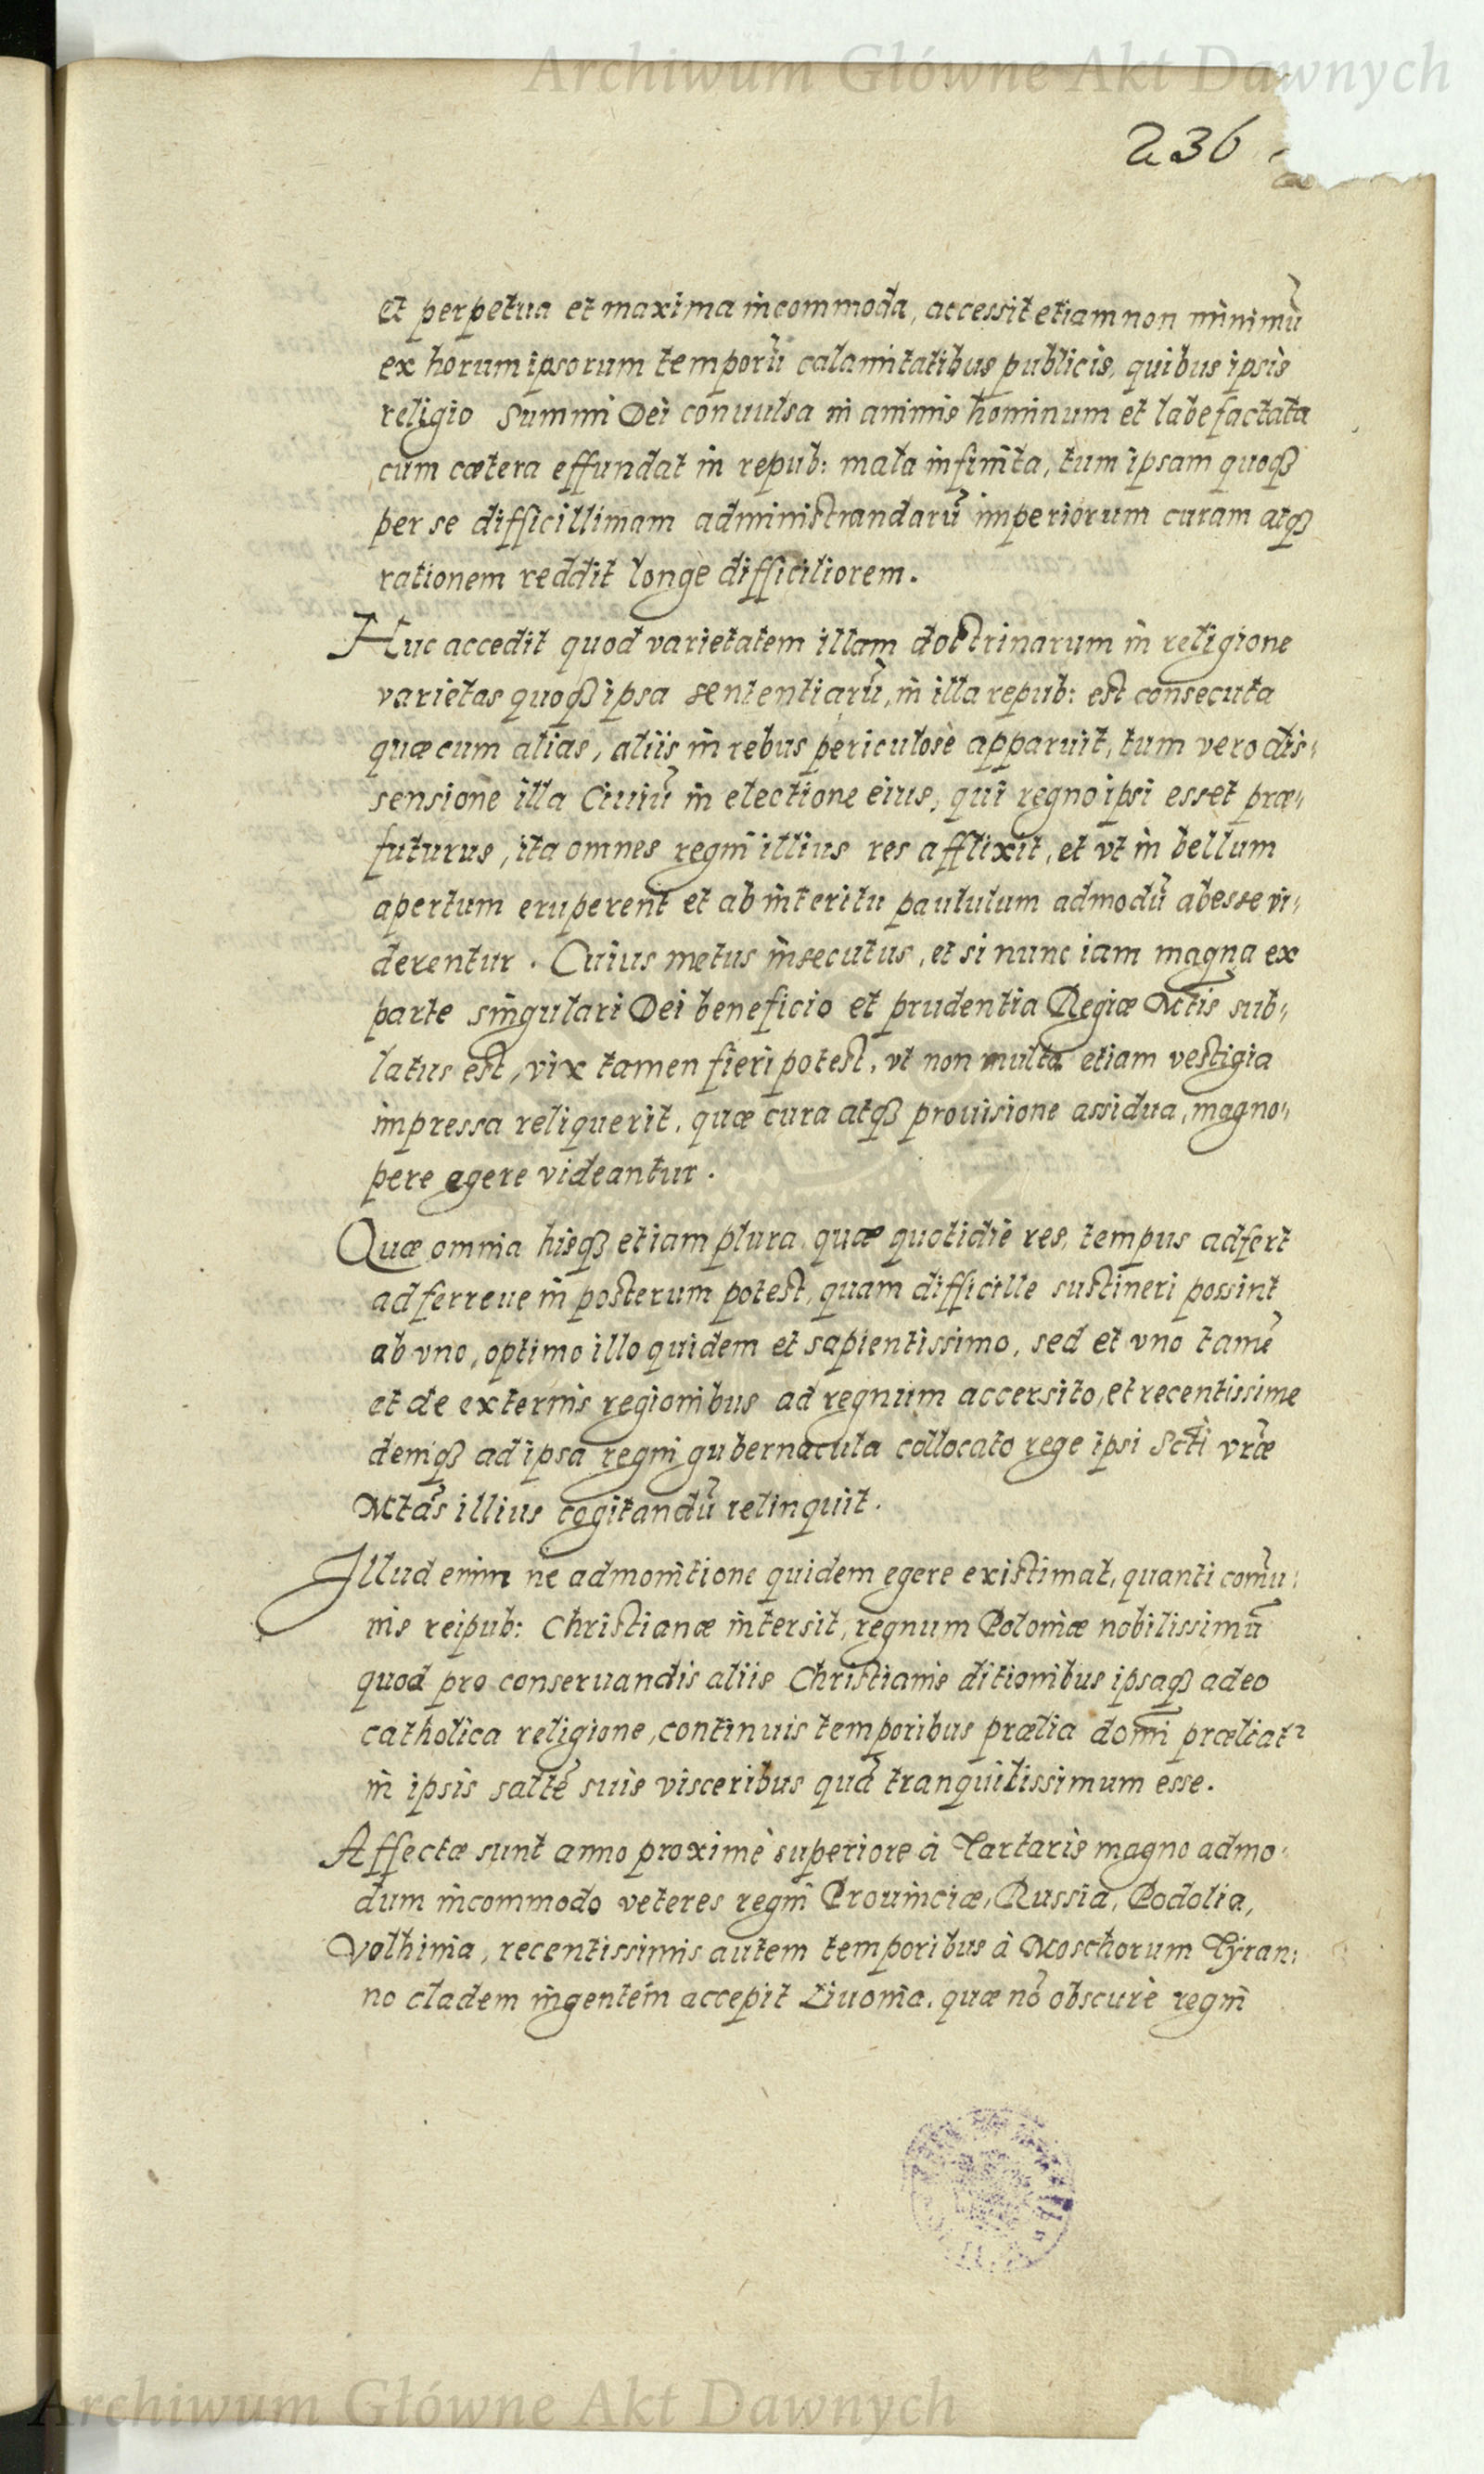 Archiwum Główne Akt Dawnych
236
et perpetua et maxima incommoda, accessit etiam non minimũ
ex horum ipsorum temporũ calamitatibus publicis, quibus ipsis
religio Summi Dei conuulsa in animis hominum et labefactata
cum cætera effundat in repub: mala infinita, tum ipsam quoqȝ
per se difficillimam administrandarũ imperiorum curam atqȝ
rationem reddit longè difficiliorem.
Huc accedit quod varietatem illam doctrinarum in religione
varietas quoqȝ ipsa sententiarũ, in illa repub: est consecuta
quæ cum alias, aliis in rebus periculosè apparuit, tum vero dis-
sensione illa Ciuiũ in electione eius, qui regno ipsi esset præ-
futurus, ita omnes regni illius res afflixit, et vt in bellum
apertum eruperent et ab interitu paululum admodũ abesse vi-
derentur. Cuius metus insecutus, et si nunc iam magna ex
parte singulari Dei beneficio et prudentia Regiæ Mtis sub-
latus est, vix tamen fieri potest, vt non multa etiam vestigia
impressa reliquerit, quæ cura atqȝ prouisione assidua, magno-
pere egere videantur.
Quæ omnia hisqȝ etiam plura, quæ quotidie res, tempus adfert
adferreue in posterum potest, quam difficille sustineri possint
ab vno, optimo illo quidem et sapientissimo, sed et vno tamẽ
et de externis regionibus ad regnum accersito, et recentissime
deniqȝ ad ipsa regni gubernacula collocato rege ipsi Scti vræ
Mtas illius cogitandũ relinquit.
Illud enim ne admonitione quidem egere existimat, quanti comũ-
nis reipub: Christianæ intersit, regnum Poloniæ nobilissimũ
quod pro conseruandis aliis Christianis ditionibus ipsaqȝ adeo
catholica religione, continuis temporibus prælia domi præliat
in ipsis saltẽ suis visceribus quã tranquilissimum esse.
Affectæ sunt anno proximè superiore à Tartaris magno admo-
dum incommodo veteres regni Prouinciæ, Russia, Podolia,
Volhinia, recentissimis autem temporibus à Moschorum Tyran-
no cladem ingentem accepit Liuonia. quæ nõ obscurè regni
Archiwum Główne Akt Dawnych